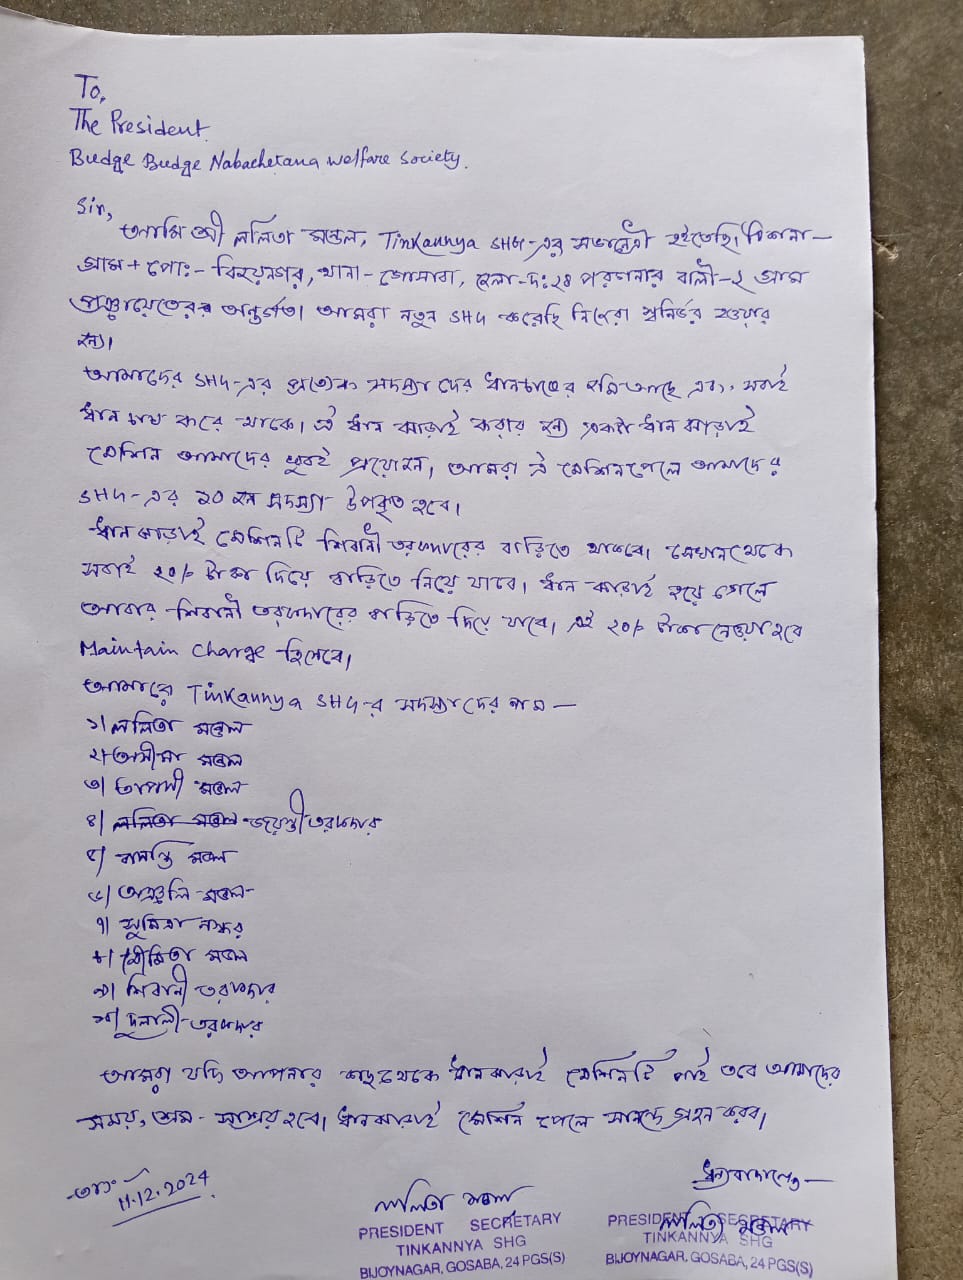 To,
The President.
Budge Budge Nabachetana welfare society.
Sir,
আমি শ্রী ললিতা মন্ডল, Tinkannya SHG-এর সভানেত্রী হইতেছি। ঠিকানা—
গ্রাম + পোঃ- বিজয়নগর, থানা - গোসাবা, জেলা - দঃ ২৪ পরগনার বালী-২ গ্রাম
পঞ্চায়েতের অন্তর্গত। আমরা নতুন SHG করেছি নিজেরা স্বনির্ভর হওয়ার
জন্য।
আমাদের SHG-এর প্রত্যেক সদস্যাদের ধানচাষের জমি আছে এবং সবাই
ধান চাষ করে থাকে। ঐ ধান ঝাড়াই করার জন্য একটা ধান ঝাড়াই
মেশিন আমাদের খুবই প্রয়োজন, আমরা ঐ মেশিন পেলে আমাদের
SHG-এর ১০ জন সদস্যা উপকৃত হবে।
ধান ঝাড়াই মেশিনটি শিবানী তরফদারের বাড়িতে থাকবে। সেখান থেকে
সবাই ২০/- টাকা দিয়ে বাড়িতে নিয়ে যাবে। ধান ঝাড়াই হয়ে গেলে
আবার শিবানী তরফদারের বাড়িতে দিয়ে যাবে। এই ২০/- টাকা নেওয়া হবে
Maintain Charge হিসেবে।
আমাদের Tinkannya SHG-র সদস্যাদের নাম —
১) ললিতা মন্ডল
২) অসীমা মন্ডল
৩) তাপসী মন্ডল
৪) ললিতা মন্ডল জয়ন্তী তরফদার
৫) বাসন্তি মন্ডল
৬) অঞ্জলি মন্ডল
৭) সুমিত্রা নস্কর
৮) মন্ডল
৯) শিবানী তরফদার
১০) দুলালী তরফদার
আমরা যদি আপনার কাছ থেকে ধান ঝারাই মেশিনটি পাই তবে আমাদের
সময়, শ্রম - সাশ্রয় হবে। ধান ঝারাই মেশিন পেলে সানন্দে গ্রহন করব।
ধন্যবাদান্তে —
তাং 11.12.2024
ললিতা মন্ডল
PRESIDENT SECRETARY
TINKANNYA SHG
BIJOYNAGAR, GOSABA, 24 PGS(S)
ললিতা মন্ডল
PRESIDENT SECRETARY
TINKANNYA SHG
BIJOYNAGAR, GOSABA, 24 PGS(S)